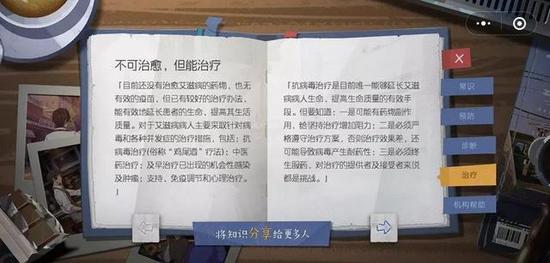 不可治愈，但能治疗
「目前还没有治愈艾滋病的药物，也无
有效的疫苗，但已有较好的治疗办法，
能有效地延长患者的生命，提高其生活
质量。对于艾滋病病人主要采取针对病
毒和各种并发症的治疗措施，包括：抗
病毒治疗(俗称“鸡尾酒”疗法)；中医
药治疗；及早治疗已出现的机会性感染
及肿瘤；支持、免疫调节和心理治疗。
」
「抗病毒治疗是目前唯一能够延长艾滋
病病人生命，提高生命质量的有效手
段。但要知道：一是可能有药物副作
用，给坚持治疗增加阻力；二是必须严
格遵守治疗方案，否则治疗效果差，还
可能导致病毒产生耐药性；三是必须终
生服药，对治疗的提供者及接受者来说
都是挑战。」
常识
预防
诊断
治疗
机构帮助
将知识分享给更多人